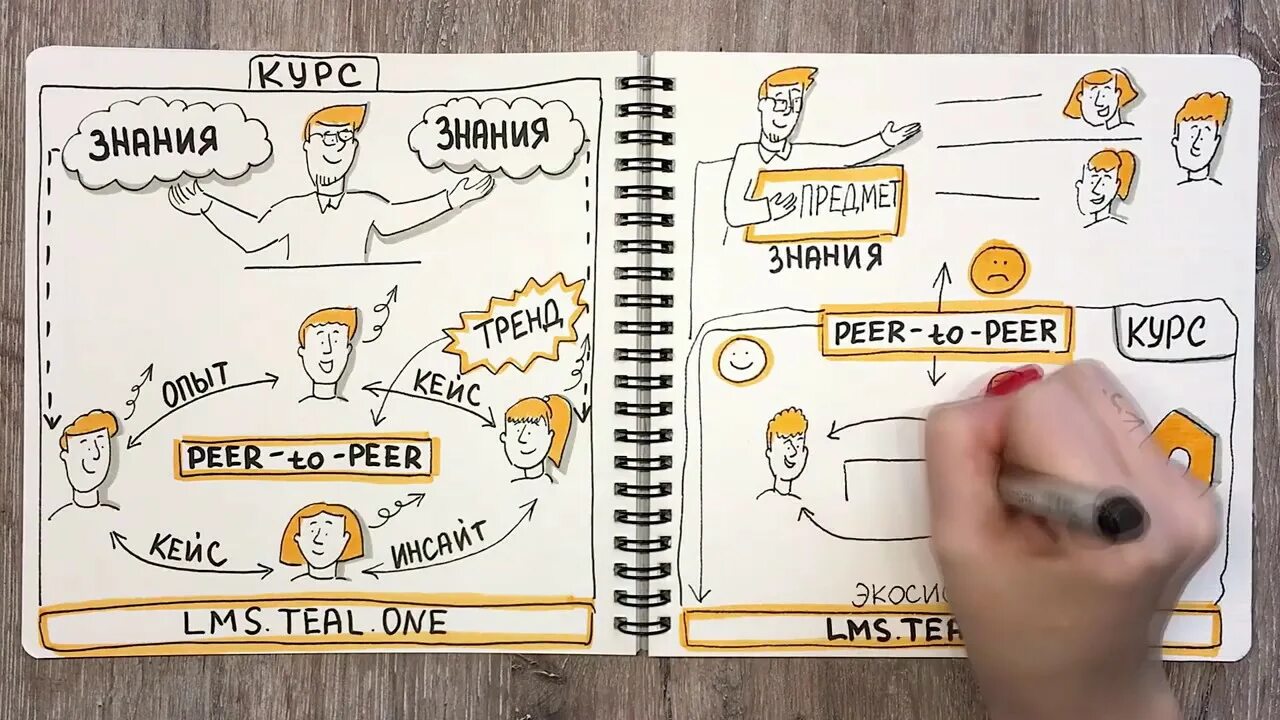 КУРС
ЗНАНИЯ
ЗНАНИЯ
ТРЕНД
ОПЫТ
КЕЙС
PEER-to-PEER
КЕЙС
ИНСАЙТ
LMS.TEAL.ONE
ПРЕДМЕТ
ЗНАНИЯ
PEER-to-PEER
КУРС
ЭКОСИС
LMS.TEA